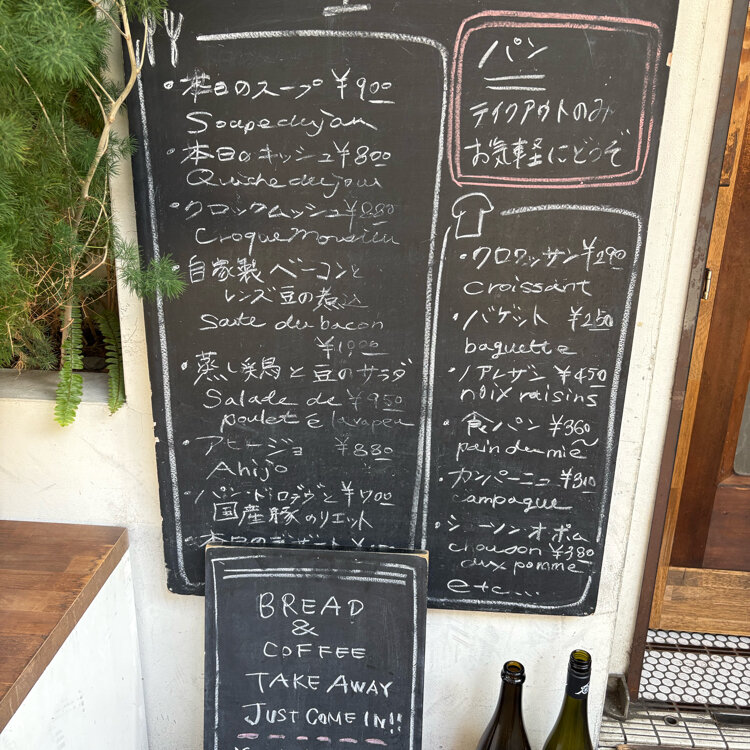 ・本日のスープ ¥900
Soupe du jour
・本日のキッシュ ¥800
Quiche du jour
・クロックムッシュ
Croque Monsieur
・自家製ベーコンと
レンズ豆の煮込
Saute du bacon
¥1000
・蒸し鶏と豆のサラダ
Salade de ¥950
poulet é
・アヒージョ ¥880
Ahijo
・パン・ド・ ¥700
国産豚のリエット
本日のデザート
パン
テイクアウトのみ
お気軽にどうぞ
・クロワッサン ¥290
croissant
・バゲット ¥250
baguette
・ノアレザン ¥450
noix raisins
・食パン ¥360
pain du mie
・カンパーニュ ¥310
campague
・ショーソンオポム
chouson ¥380
aux pomme
etc...
BREAD
&
COFFEE
TAKE AWAY
JUST COME IN!!